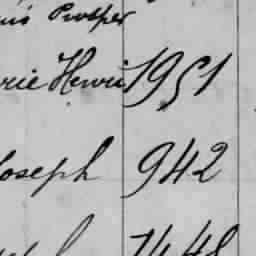 Prosper
rie Henri 1951
Joseph 942
1448